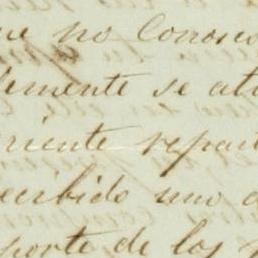 que no conosco
lemente se at
riente repart
ecibido uno
porte de los